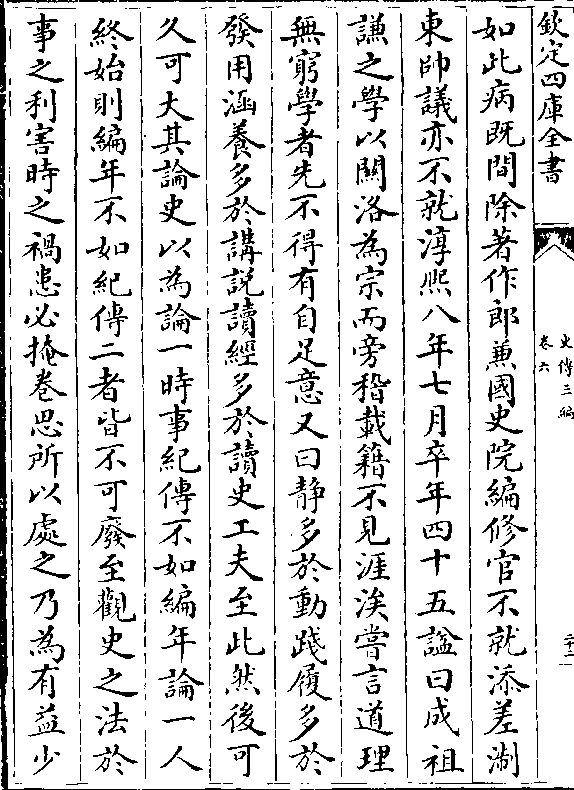 欽定四庫全書
史傳三編
卷六
二十二
如此病既間除著作郎兼國史院編修官不就添差淛
東帥議亦不就淳熙八年七月卒年四十五諡曰成祖
謙之學以關洛為宗而旁稽載籍不見涯涘嘗言道理
無窮學者先不得有自足意又曰静多於動踐履多於
發用涵養多於講説讀經多於讀史工夫至此然後可
久可大其論史以為論一時事紀傳不如編年論一人
終始則編年不如紀傳二者皆不可廢至觀史之法於
事之利害時之禍患必掩卷思所以處之乃為有益少